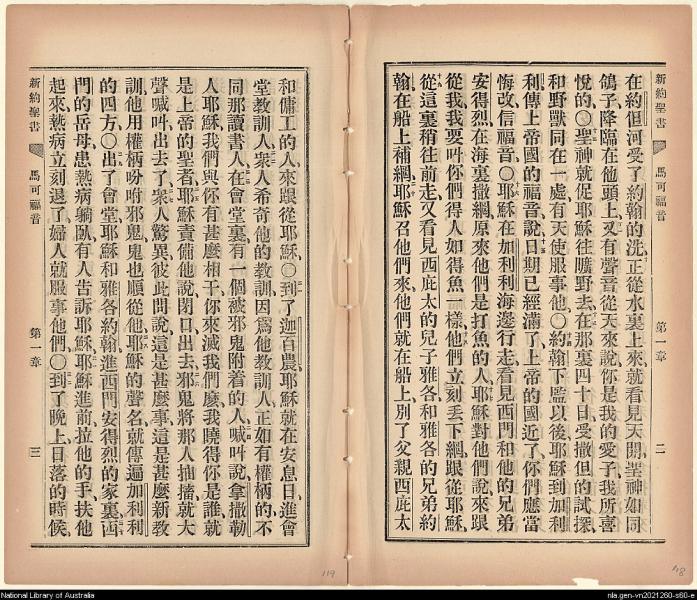 新約聖書 馬可福音 第一章 二
在約但河受了約翰的洗、正從水裏上來、就看見天開、聖神如同
鴿子降臨在他頭上、又有聲音從天來說、你是我的愛子、我所喜
悅的、〇聖神就促耶穌往曠野去、在那裏四十日、受撒但的試探、
和野獸同在一處、有天使服事他、〇約翰下監以後、耶穌到加利
利、傳上帝國的福音、說、日期已經滿了、上帝的國近了、你們應當
悔改信福音、〇耶穌在加利利海邊行走、看見西門和他的兄弟
安得烈、在海裏撒網、原來他們是打魚的人、耶穌對他們說、來跟
從我、我要叫你們得人如得魚一樣、他們立刻丟下網、跟從耶穌、
從這裏稍往前走、又看見西庇太的兒子雅各、和雅各的兄弟約
翰、在船上補網、耶穌召他們來、他們就在船上、別了父親西庇太
和傭工的人、來跟從耶穌、〇到了迦百農、耶穌就在安息日、進會
堂教訓人、衆人希奇他的教訓、因爲他教訓人、正如有權柄的、不
同那讀書人、在會堂裏、有一個被邪鬼附着的人、喊叫說、拿撒勒
人耶穌、我們與你有甚麼相干、你來滅我們麼、我曉得你是誰、就
是上帝的聖者、耶穌責備他說、閉口出去、邪鬼將那人抽搐、就大
聲喊叫出去了、衆人驚異、彼此問說、這是甚麼事、這是甚麼新敎
訓、他用權柄吩咐邪鬼、鬼也順從他、耶穌的聲名、就傳遍加利利
的四方、〇出了會堂、耶穌和雅各約翰、進西門安得烈的家裏、西
門的岳母、患熱病躺臥、有人告訴耶穌、耶穌進前、拉他的手、扶他
起來、熱病立刻退了、婦人就服事他們、〇到了晚上日落的時候、
新約聖書 馬可福音 第一章 三
119
118
National Library of Australia
nla.gen-vn2021260-s60-e